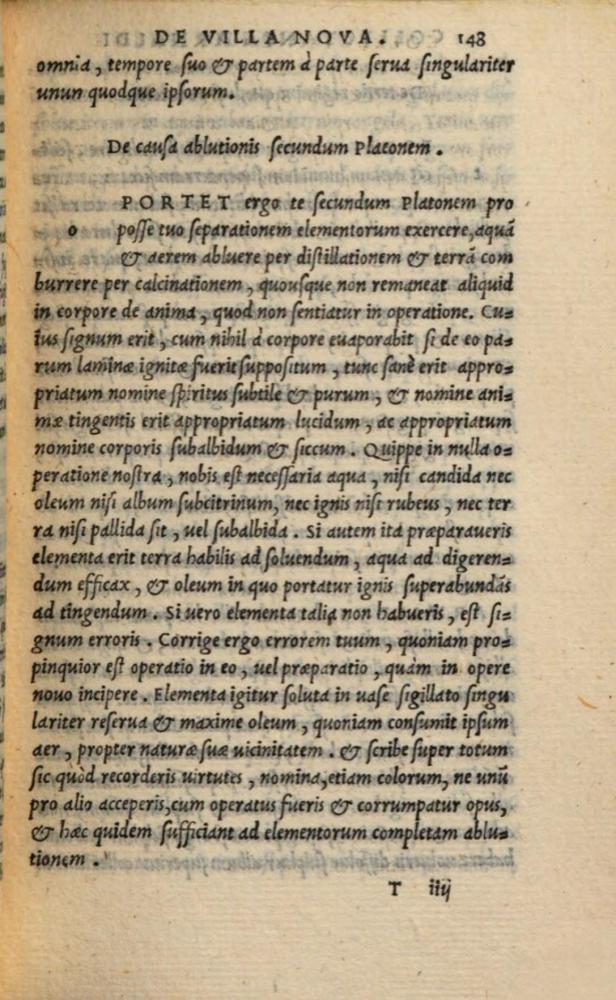 DE VILLA NOVA. 148
omnia, tempore suo & partem à parte serua singulariter
unun quodque ipsorum.
De causa ablutionis secundum Platonem.
PORTET ergo te secundum Platonem pro
o posse tuo separationem elementorum exercere, aquã
& aerem abluere per distillationem & terrã com
burrere per calcinationem, quousque non remaneat aliquid
in corpore de anima, quod non sentiatur in operatione. Cu=
ius signum erit, cum nihil à corpore euaporabit si de eo pa=
rum laminæ ignitæ fuerit suppositum, tunc sanè erit appro=
priatum nomine spiritus subtile & purum, & nomine ani=
mæ tingentis erit appropriatum lucidum, ac appropriatum
nomine corporis subalbidum & siccum. Quippe in nulla o=
peratione nostra, nobis est necessaria aqua, nisi candida nec
oleum nisi album subcitrinum, nec ignis nisi rubeus, nec ter
ra nisi pallida sit, uel subalbida. Si autem ita præparaueris
elementa erit terra habilis ad soluendum, aqua ad digeren=
dum efficax, & oleum in quo portatur ignis superabundãs
ad tingendum. Si uero elementa talia non habueris, est si=
gnum erroris. Corrige ergo errorem tuum, quoniam pro=
pinquior est operatio in eo, uel præparatio, quàm in opere
nouo incipere. Elementa igitur soluta in uase sigillato singu
lariter reserua & maxime oleum, quoniam consumit ipsum
aer, propter naturæ suæ uicinitatem. & scribe super totum
sic quòd recorderis uirtutes, nomina, etiam colorum, ne unũ
pro alio acceperis, cum operatus fueris & corrumpatur opus,
& hæc quidem sufficiant ad elementorum completam ablu=
tionem.
T iiij